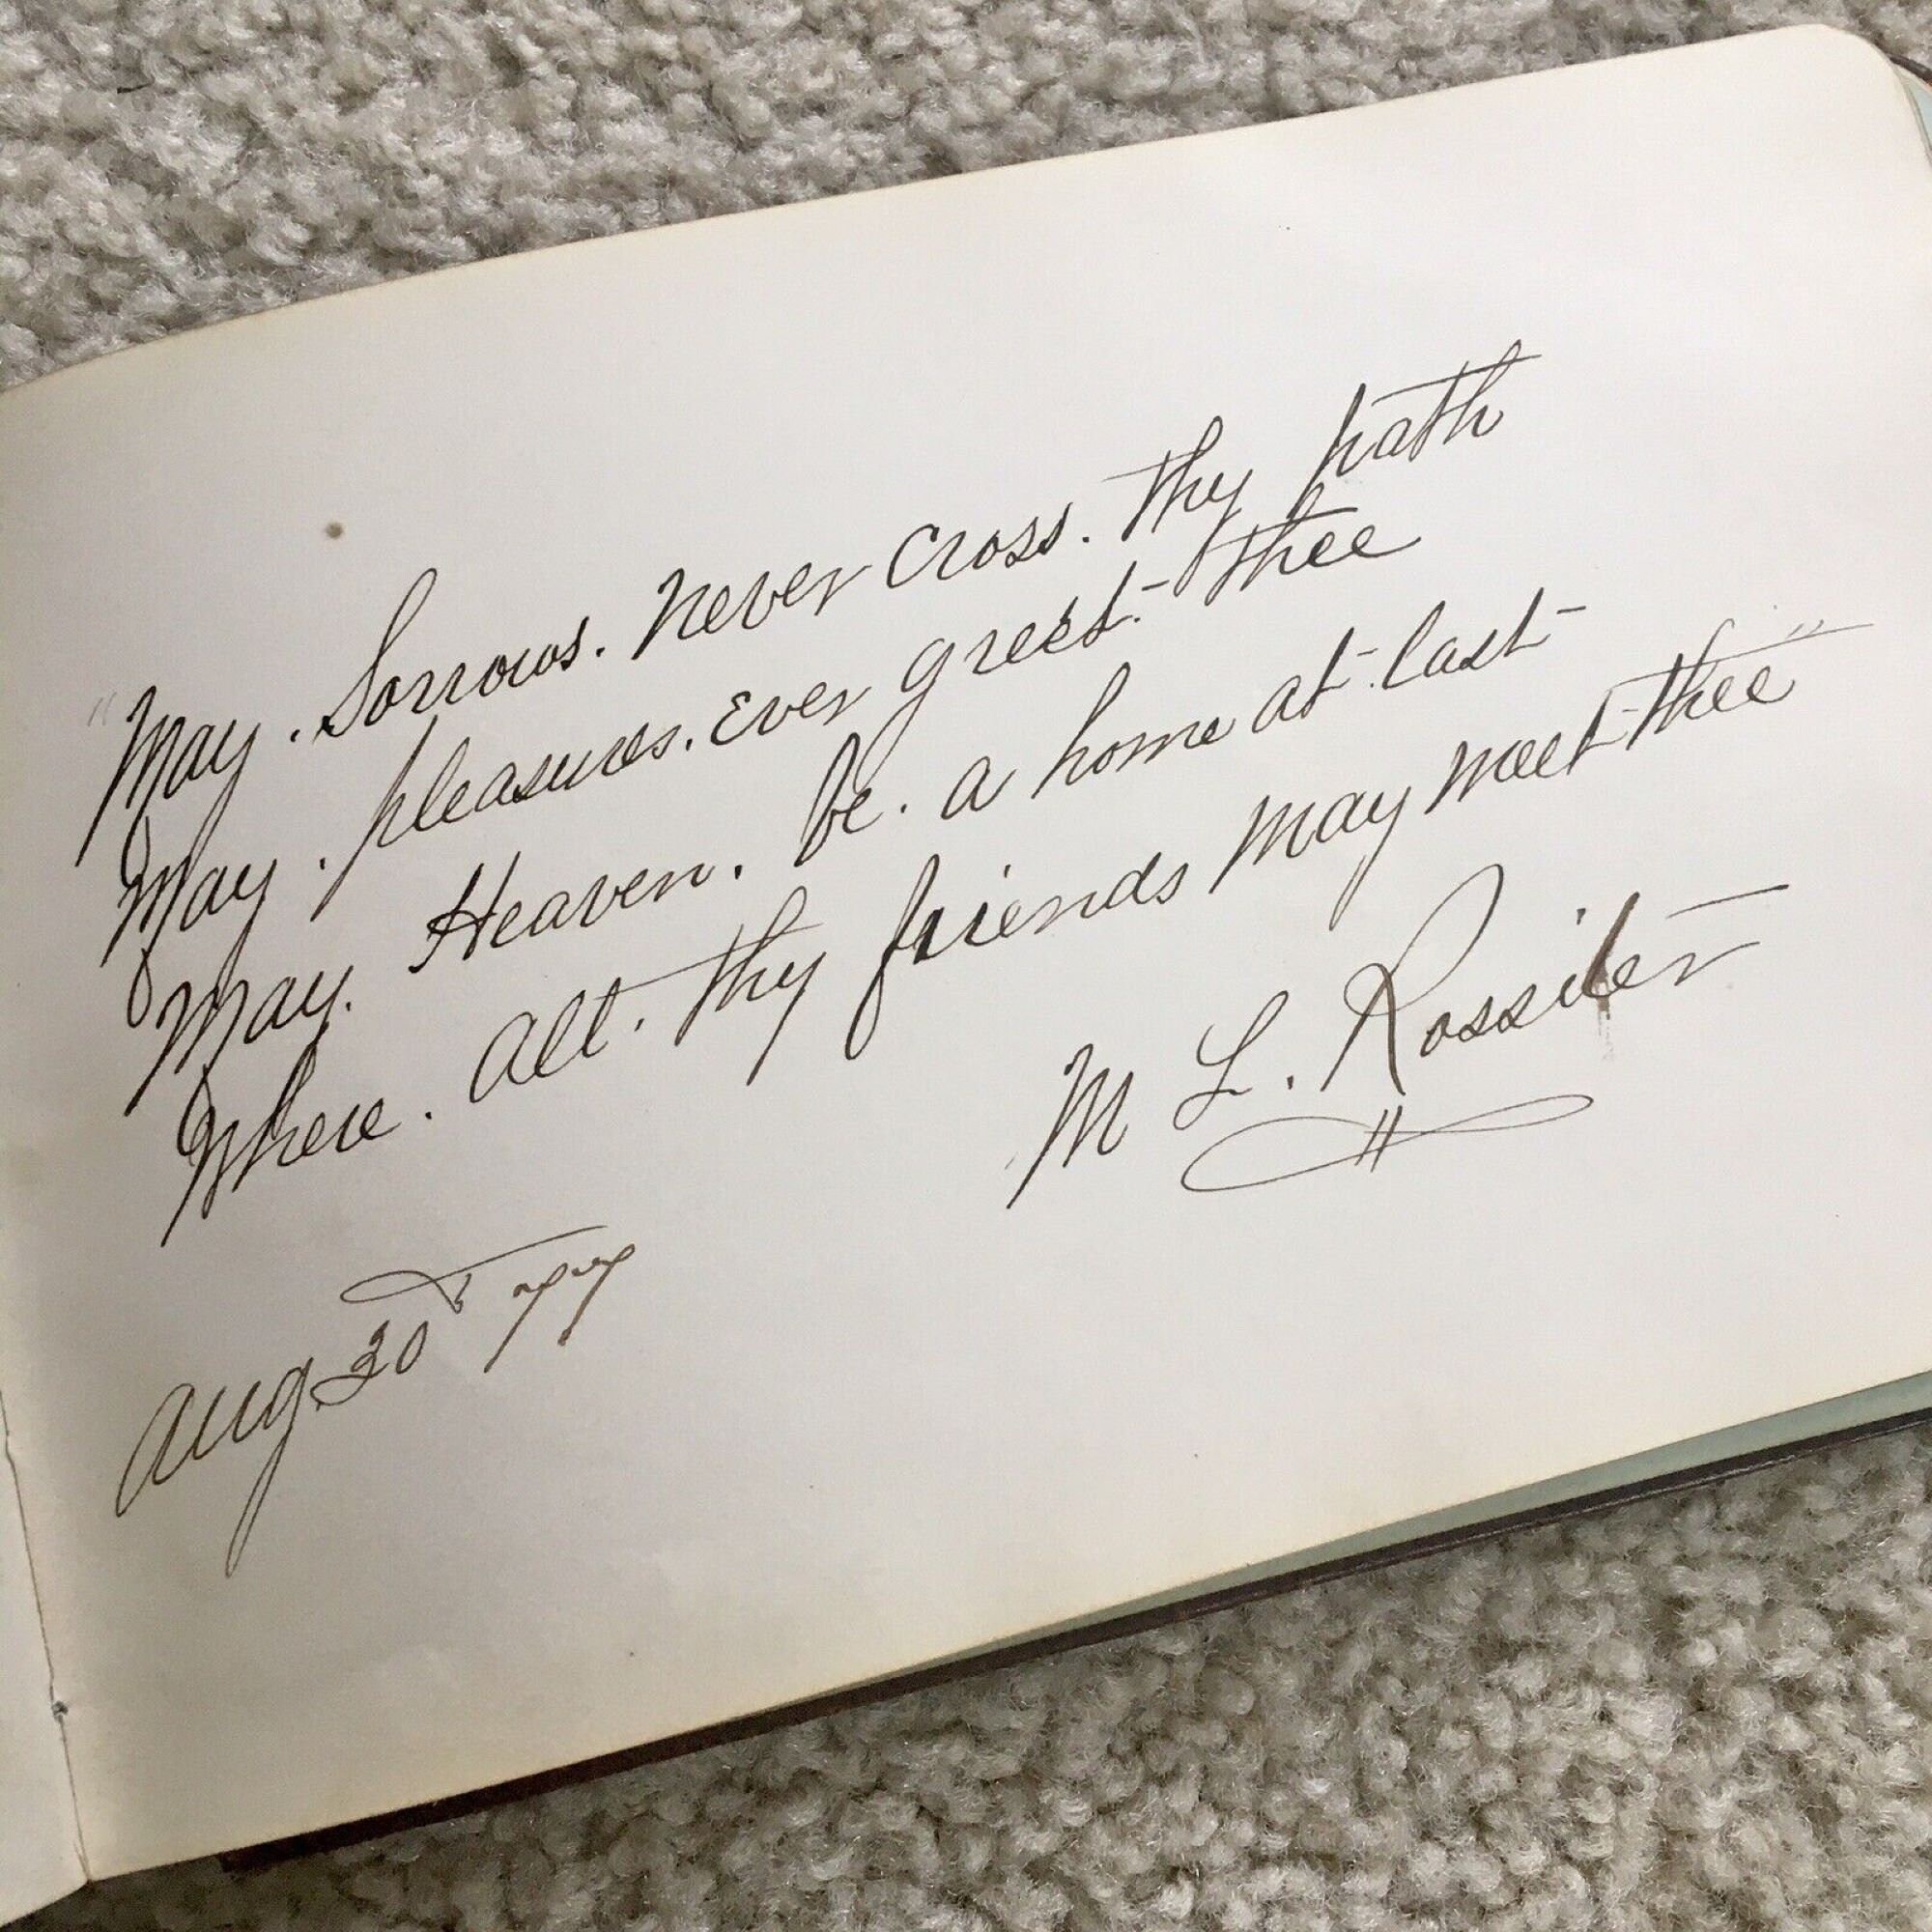 "May. Sorrows. Never Cross. Thy path
May. pleasures. Ever greet. thee
May. Heaven. be. a home at last
Where. All. Thy friends May meet thee"
M L. Rossiter
Aug 30 77